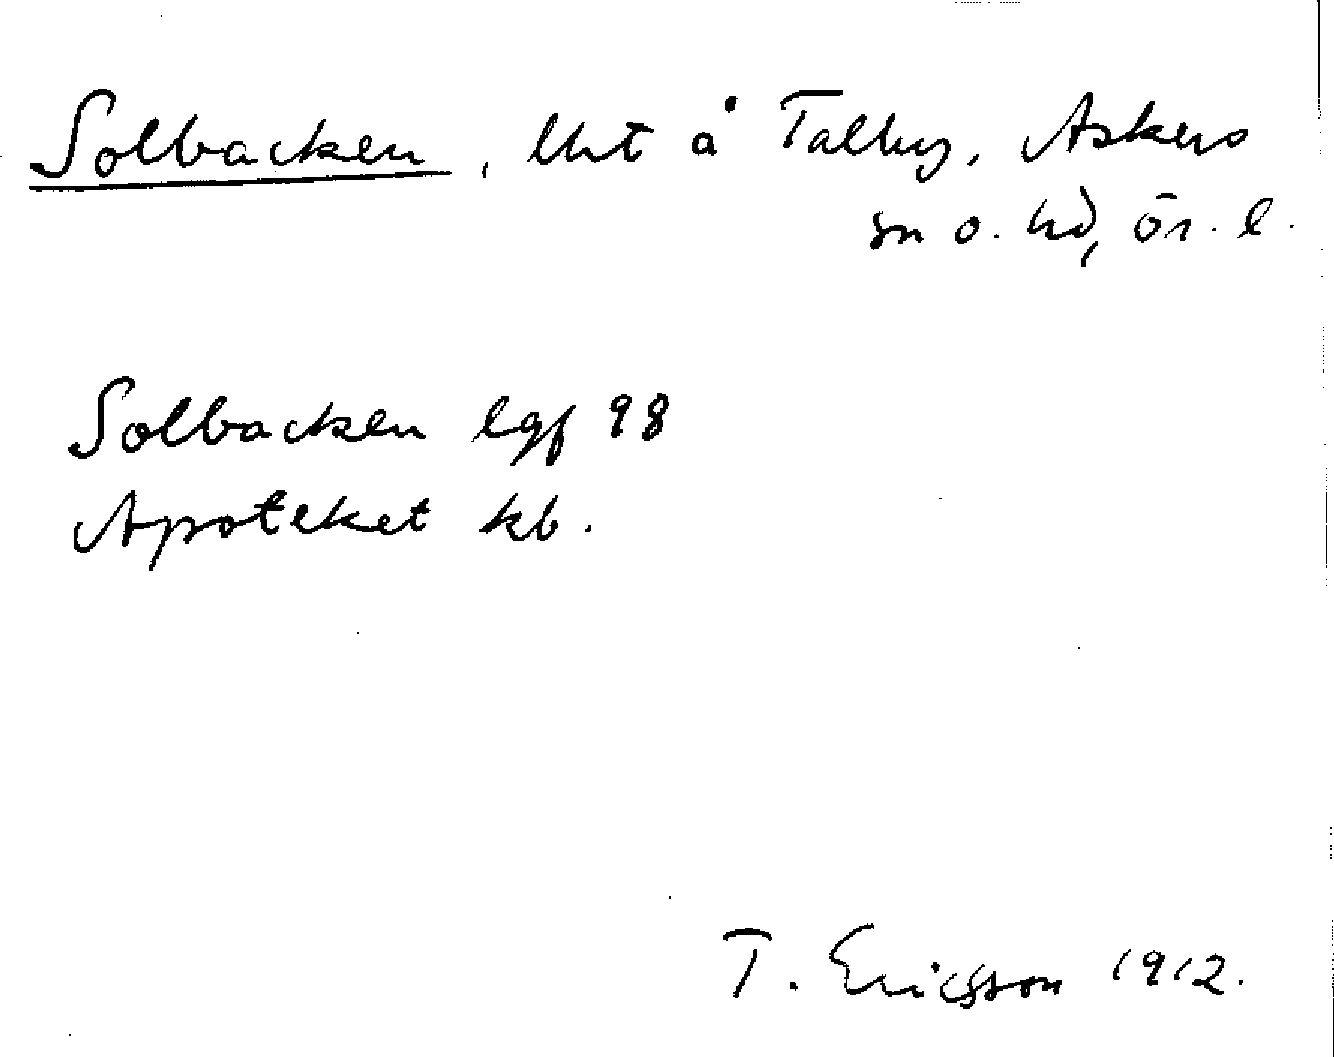 Solbacken, lht å Talby, Askers
sn o. hd, Ör. l.
Solbacken lgf 98
Apoteket kb.
T. Ericsson 1912.